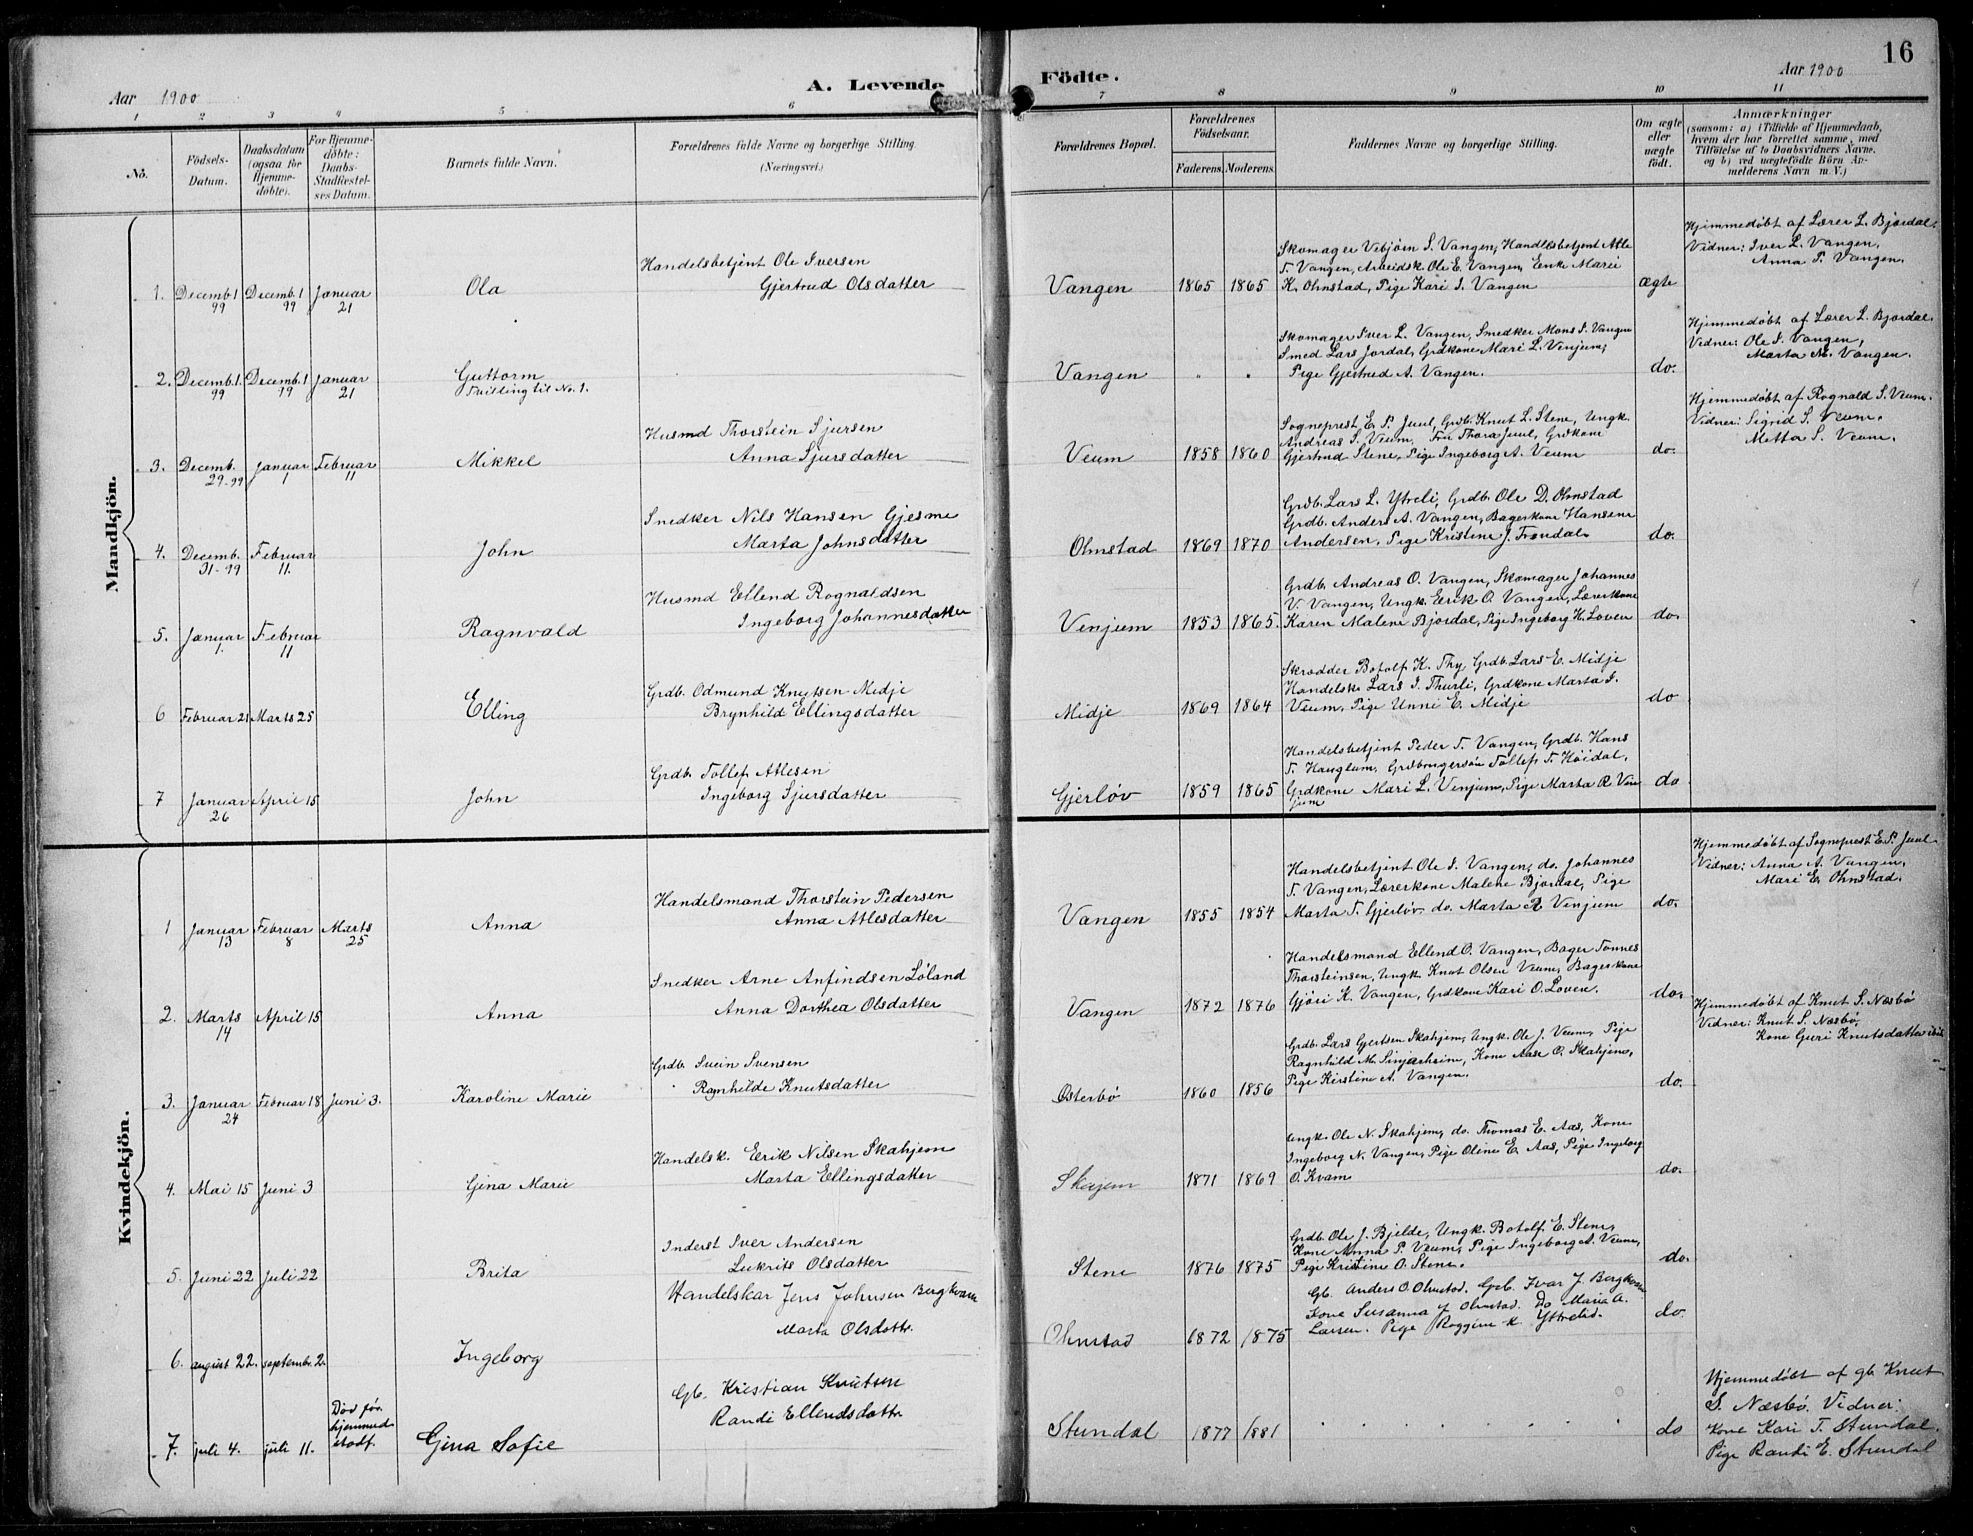 16
Aar 1900
A. Levende
Födte.
Aar 1900
1 2 3 4 5 6 7 8 9 10 11
No.
Födsels-Datum.
Daabsdatum (ogsaa for Hjemmedøbte).
For Hjemmedøbte: Daabs-Stadfæstelses Datum.
Barnets fulde Navn.
Forældrenes fulde Navne og borgerlige Stilling. (Næringsvei.)
Forældrenes Bopæl.
Forældrenes Födselsaar.
Faderens. Moderens.
Faddernes Navne og borgerlige Stilling.
Om ægte eller uægte födt.
Anmærkninger
(saasom: a) i Tilfælde af Hjemmedaab, hvem der har forrettet samme, med Tilföielse af to Daabsvidners Navne, og b) ved uægtefödte Börn Anmelderens Navn m. V.)
Mandkjön.
1. Decemb. 1 99 Decemb. 1 99 Januar 21
Ola
Handelsbetjent Ole Iversen
Gjertrud Olsdatter
Vangen 1865 1865
Skomager Vebjörn S. Vangen, Handelsbetjent Atle
T. Vangen, Arbeidsk. Ole E. Vangen, Enke Marie
K. Ohnstad, Pige Kari I. Vangen
ægte
Hjemmedøbt af Lærer L. Bjordal.
Vidner: Iver L. Vangen,
Anna P. Vangen.
2. Decemb. 1. 99 Decemb. 1 99 Januar 21
Guttorm
Tvilling til No. 1.
Vangen " "
Skomager Iver L. Vangen, Smedker Mons I. Vangen
Smed Lars Jordal, Grdkone Mari L. Venjum,
Pige Gjertrud A. Vangen.
do.
Hjemmedøbt af Lærer L. Bjordal.
Vidner: Ole I. Vangen,
Marta M. Vangen.
3. Decemb. 29-99 Januar 1 Februar 11
Mikkel
Husmd Thorstein Sjursen
Anna Sjursdatter
Veum 1858 1860
Sogneprest E. P. Juul, Grdb. Knut L. Stene, Ungk.
Andreas S. Veum, Fru Thora Juul, Grdkone
Gjertrud Stene, Pige Ingeborg A. Veum
do.
Hjemmedøbt af Rognald S. Veum.
Vidner: Sigrid S. Veum.
Metta S. Veum.
4. Decemb. 31-99 Februar 11.
John
Snedker Nils Hansen Gjesme
Marta Johnsdatter
Ohnstad 1869 1870
Grdb. Lars L. Ytreli, Grdb. Ole D. Ohnstad
Grdb. Anders A. Vangen, Bagerkone Hansine
Andersen, Pige Kristine J. Frondal
do.
5. Januar 1. Februar 11
Ragnvald
Husmd Ellend Rognaldsen
Ingeborg Johannesdatter
Venjum 1853 1865.
Grdb. Andreas O. Vangen, Skomager Johannes
V. Vangen, Ungk. Eerik O. Vangen, Lærerkone
Karen Malene Bjordal, Pige Ingeborg H. Loven
do.
6 Februar 21 Marts 25
Elling
Grdb. Odmund Knutsen Midje
Brynhild Ellingsdatter
Midje 1869 1864
Skrædder Botolf K. Thy, Grdb. Lars E. Midje
Handelsk. Lars I. Thurli, Grdkone Marta I.
Veum, Pige Unni E. Midje
do
7 Januar 26 April 15
John
Grdb. Tollef Atlesen
Ingeborg Sjursdatter
Gjerløv 1859 1865
Handelsbetjent Peder T. Vangen, Grdb. Hans
T. Hauglum, Tollef T. Höidal,
Grdkone Mari L. Venjum, Pige Marta R. Ven
jum
do
Kvindekjön.
1 Januar 13 Februar 8 Marts 25
Anna
Handelsmand Thorstein Pedersen
Anna Atlesdatter
Vangen 1855 1854
Handelsbetjent Ole I. Vangen, do. Johannes
T. Vangen, Lærerkone Malene Bjordal, Pige
Marta T. Gjerløv do. Marta R Venjum
do.
Hjemmedøbt af Sogneprest E. P. Juul.
Vidner: Anna A. Vangen,
Mari E. Ohnstad.
2. Marts 14 April 15
Anna
Snedker Arne Anfindsen Löland
Anna Dorthea Olsdatter
Vangen 1872 1876
Handelsmand Ellend O. Vangen, Bager Tönnes
Thorsteinsen, Ungk. Knut Olsen Veum, Bagerkone
Gjöri K. Vangen, Grdkone Kari O. Loven.
do.
3. Januar 24 Februar 18 Juni 3.
Karoline Marie
Grdb. Svein Svensen
Ragnhilde Knutsdatter
Østerbø 1860 1856
Grdb. Lars Gjertsen Skahjem, Ungk. Ole J. Veum, Pige
Ragnhild M. Sinjarheim, Kone Aase O. Skahjem,
Pige Kirstine A. Vangen.
do.
Hjemmedøbt af Knut S. Næsbö
Vidner: Knut S. Næsbö,
Kone Guri Knutsdatter ibid
4. Mai 15 Juni 3
Gina Marie
Handelsk. Eerik Nilsen Skahjem
Marta Ellingsdatter
Skajem 1871 1869
Ungk. Ole N. Skahjem, do. Thomas E. Aas, Kone
Ingeborg N. Vangen, Pige Oline E. Aas, Pige Ingeborg
O. Kvam
do.
5. Juni 22 Juli 22
Brita
Inderst Iver Andersen
Lukrits Olsdatter
Stene 1876 1875
Grdb. Ole J. Bjelde, Ungk. Botolf E. Stene,
Kone Anna P. Veum, Pige Ingeborg A. Veum,
Pige Kristine O. Stene.
do.
6. august 22. septembr. 2.
Ingeborg
Handelskar Jens Johnsen Bergkvam
Marta Olsdottr.
Ohnstad 1872 1875
Gb. Anders O. Ohnstad. Gb. Ivar J. Bergkvam
Kone Susanna J Ohnstad. Do Maria A.
Larsen. Pige K Ytrelid.
do.
7. juli 4. juli 11. Död før hjemmed. stadf.
Gina Sofie
Gb. Kristian Knutsen
Randi Ellendsdottr
Stundal 1877 1881
do
Hjemmedøbt af gb. Knut
S. Næsbø. Vidner:
Kone Kari T. Stundal.
Pige Randi E. Stundal